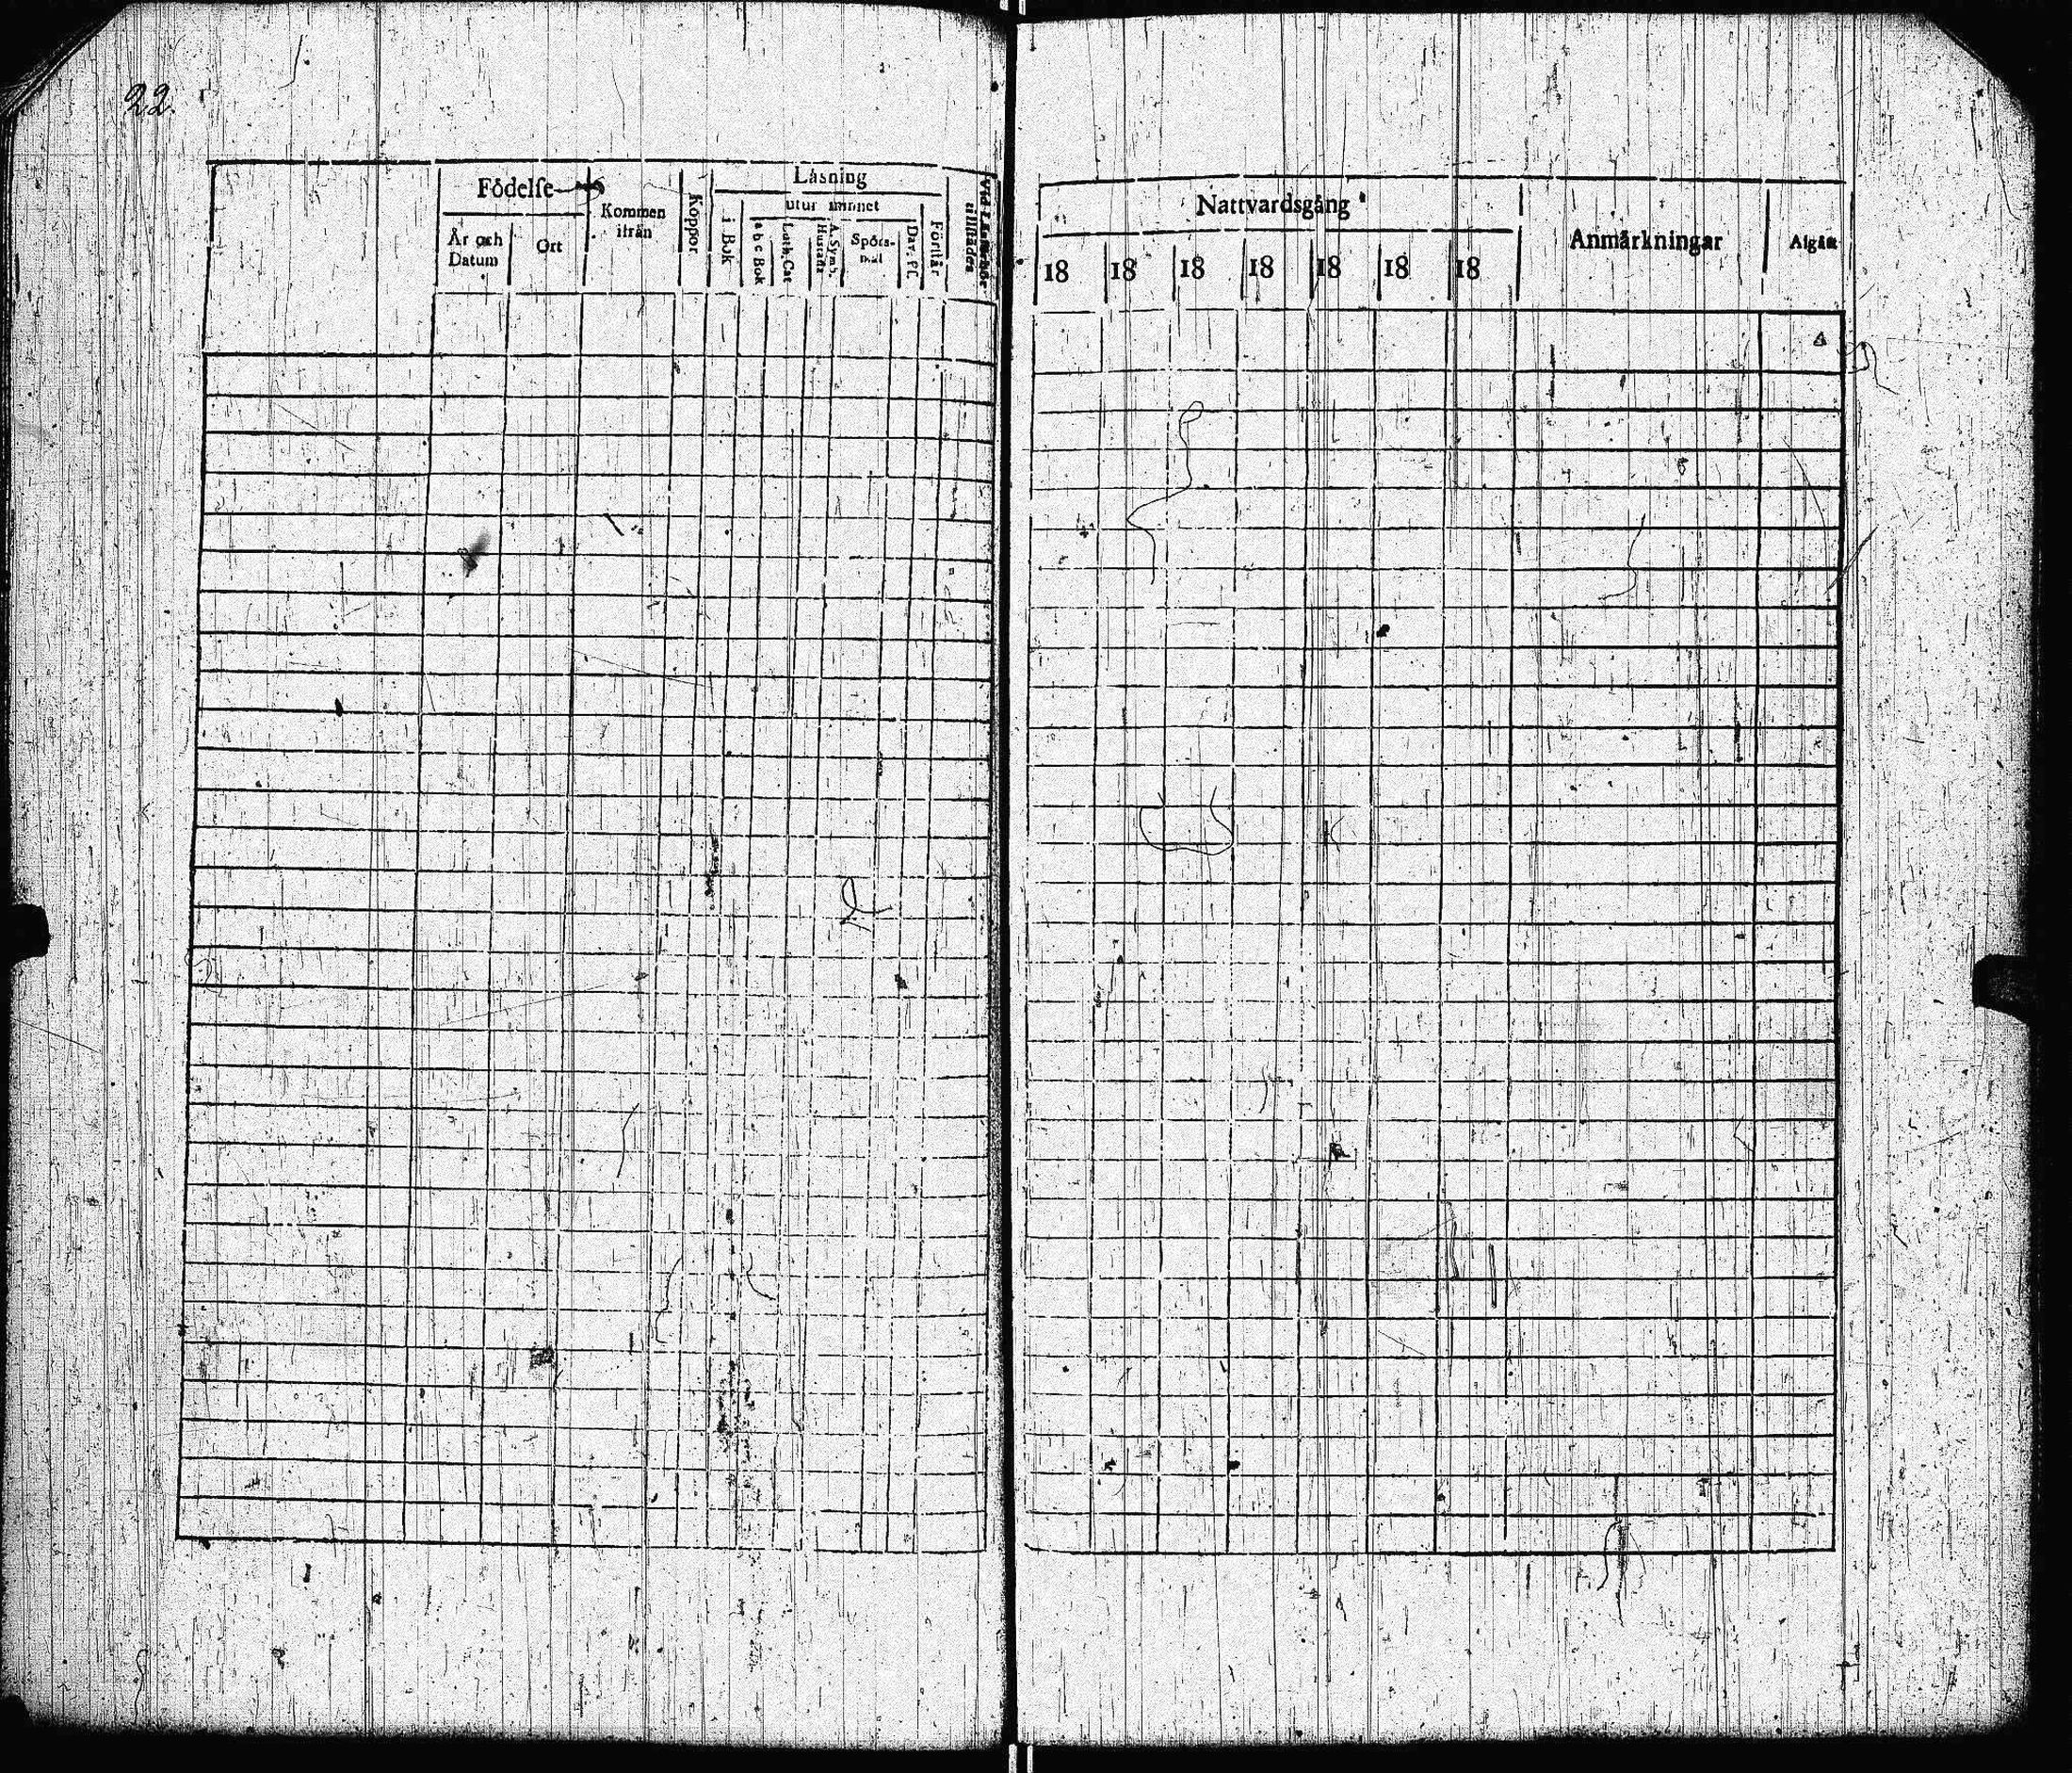 22.
Födelse-
År och Datum
Ort
Kommen ifrån
Koppor
Läsning
i Bok
utur minnet
a b c Bok
Luth. Cat
A. Symb. Hustafla
Spörs-mål
Dav. Ps.
Förstår
Nattvardsgång
18 18 18 18 18 18 18
Anmärkningar
Afgått